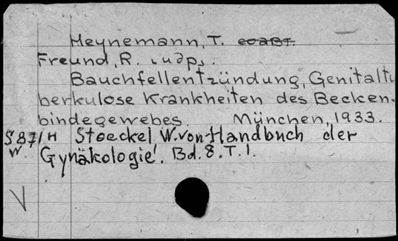 Meynemann, T. соавт.
Freund, R. и др.
Bauchfellentzündung, Genitaltu
berkulose Krankheiten des Becken.
bindegewebes. München, 1933.
587/H Stoeckel W. von Handbuch der
W. Gynäkologie. Bd. 8. T. 1.
V